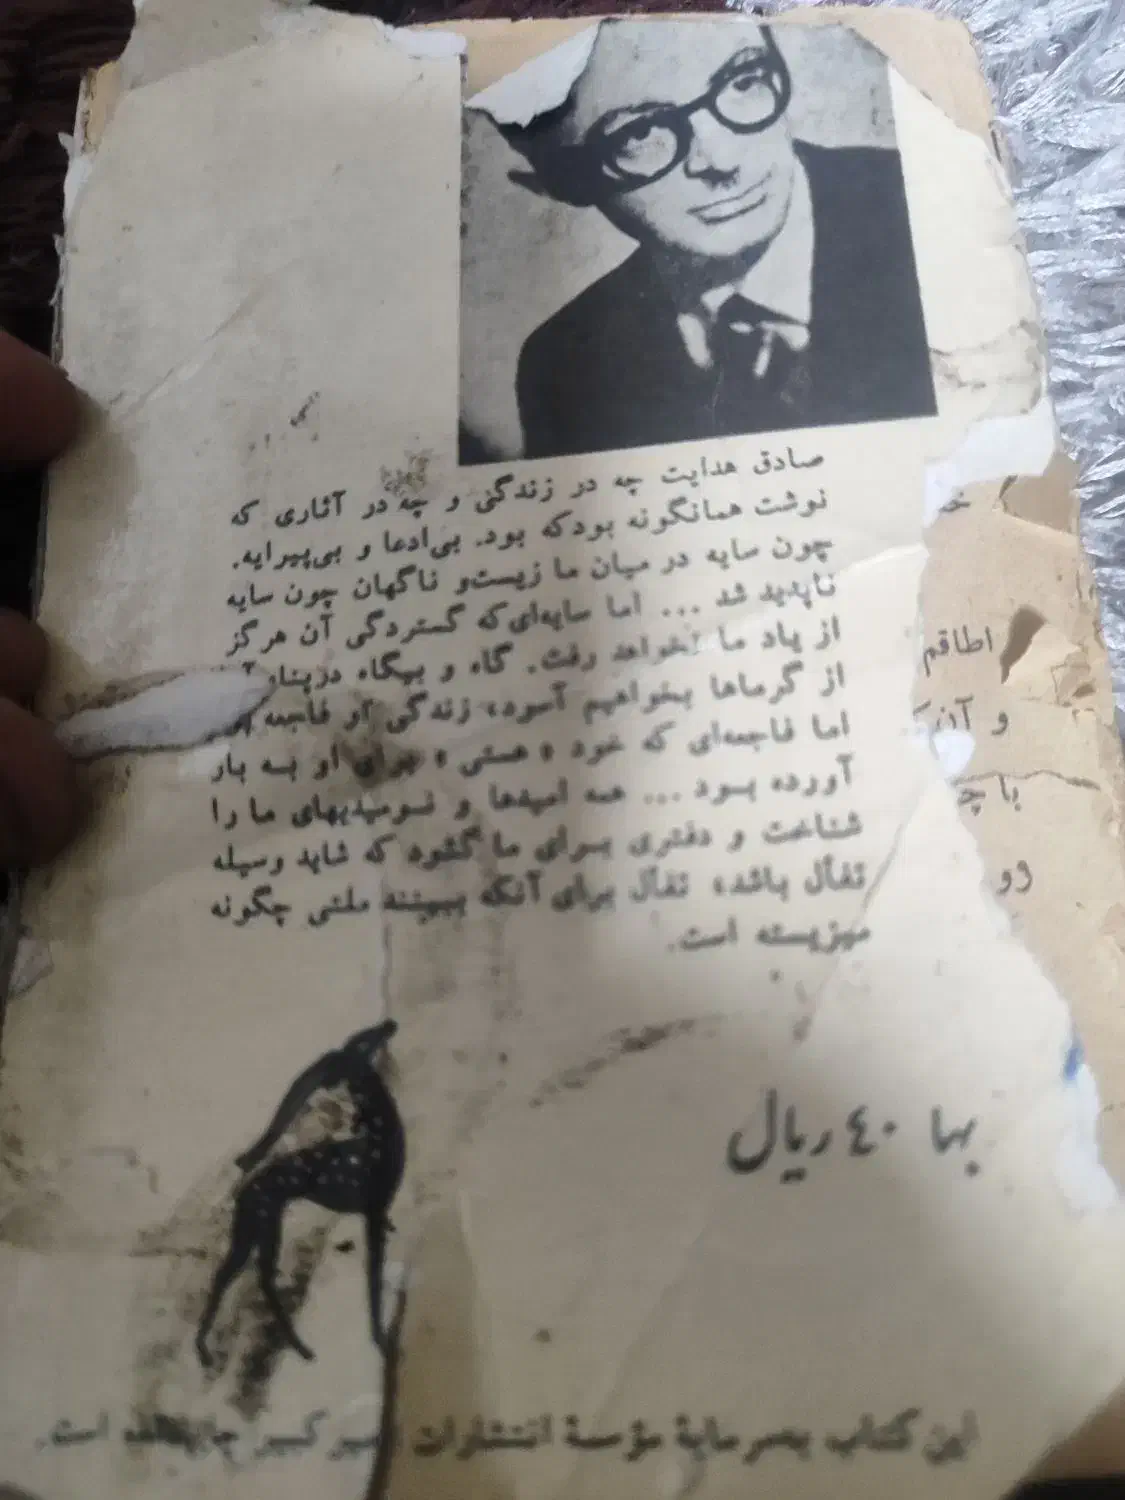 صادق هدایت چه در زندگی و چه در آثاری که
نوشت همانگونه بود که بود. بی‌ادعا و بی‌پیرایه.
چون سایه در میان ما زیست و ناگهان چون سایه
ناپدید شد ... اما سایه‌ای که گستردگی آن هرگز
از یاد ما نخواهد رفت. گاه و بیگاه در پناه
از گرماها بخواهیم آسود، زندگی او فاجعه
اما فاجعه‌ای که خود «هستی» برای او به بار
آورده بود ... همه امیدها و نومیدیهای ما را
شناخت و دفتری برای ما گشود که شاید وسیله
تفأل باشد، تفأل برای آنکه ببینند ملتی چگونه
میزیسته است.
اطاقم
و آن
با چ
رو
بها ۴۰ ریال
این کتاب بسرمایهٔ مؤسسهٔ انتشارات امیرکبیر چاپ شده است.